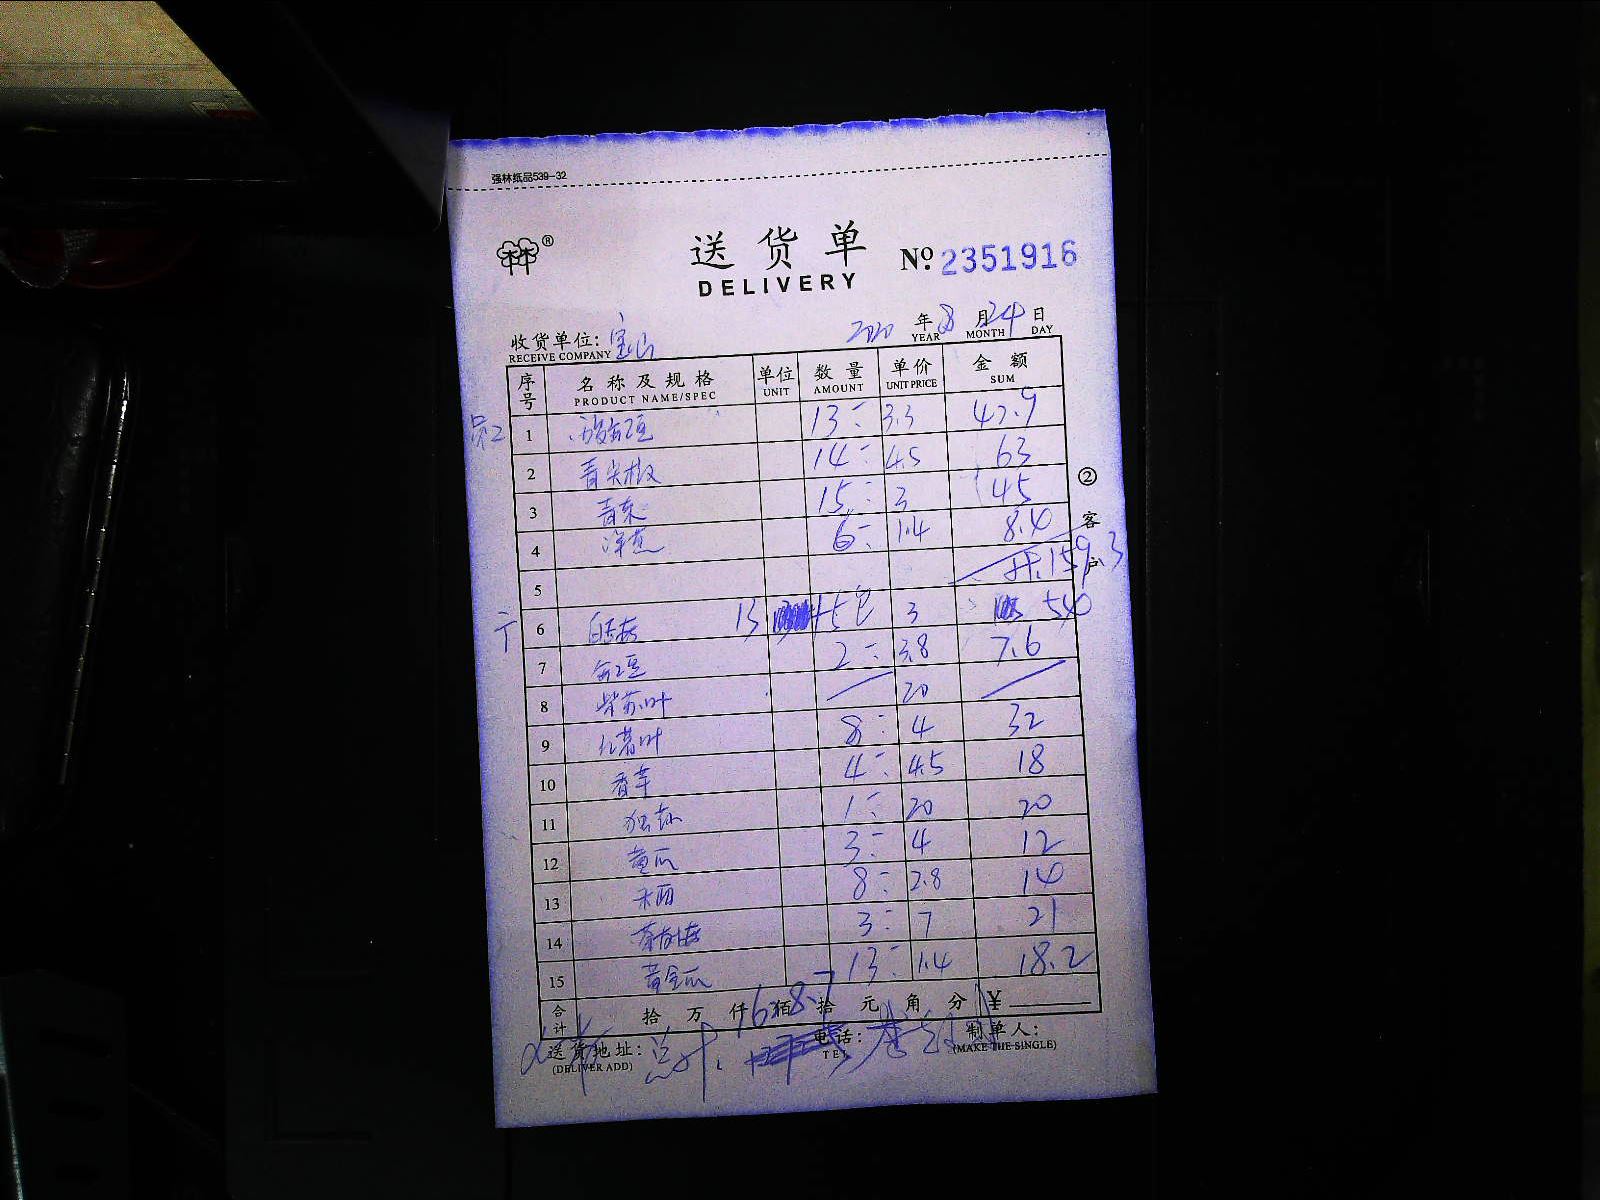 强林纸品539-32
送货单
DELIVERY
® No. 2351916
2020年8月24日
YEAR MONTH DAY
收货单位: 宝山
RECEIVE COMPANY
序号 名称及规格 单位 数量 单价 金额
PRODUCT NAME/SPEC UNIT AMOUNT UNIT PRICE SUM
1 13 3.3 42.9
2 青尖椒 14 4.5 63
3 青菜 15 3 45
4 洋葱 6 1.4 8.4
5 159.3
6 13 +5包 3 54
7 2 3.8 7.6
8 紫苏叶 20
9 8 4 32
10 香芹 4 4.5 18
11 1 20 20
12 黄瓜 3 4 12
13 8 2.8 14
14 3 7 21
15 黄金瓜 13 1.4 18.2
② 客户
合计 拾 万 仟 佰 拾 元 角 分 ¥
送货地址: 电话: 制单人:
(DELIVER ADD) TEL (MAKE THE SINGLE)